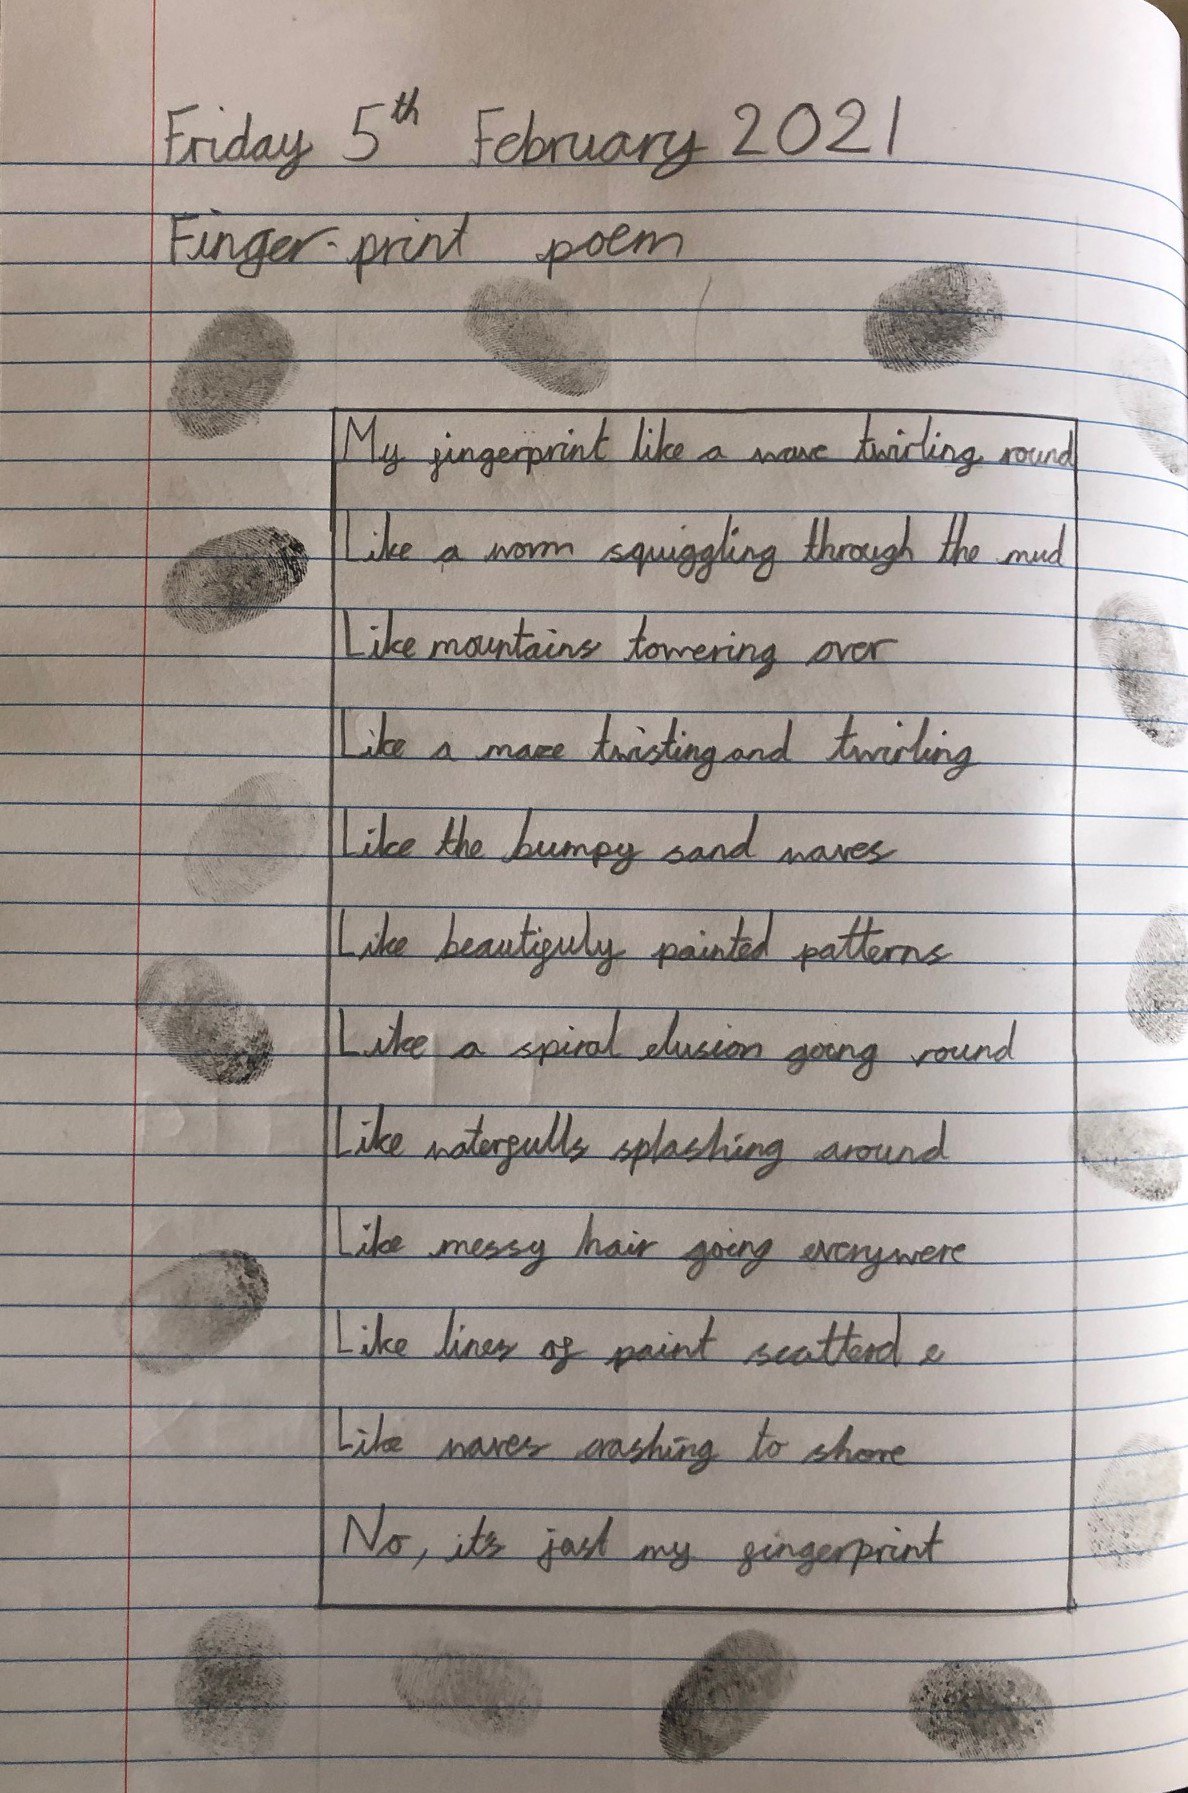 Friday 5th February 2021
Finger-print poem
My fingerprint like a wave twirling round
Like a worm squiggling through the mud
Like mountains towering over
Like a maze twisting and twirling
Like the bumpy sand waves
Like beautifuly painted patterns
Like a spiral elusion going round
Like waterfulls splashing around
Like messy hair going everywere
Like lines of paint scatterd e
Like waves crashing to shore
No, its just my fingerprint